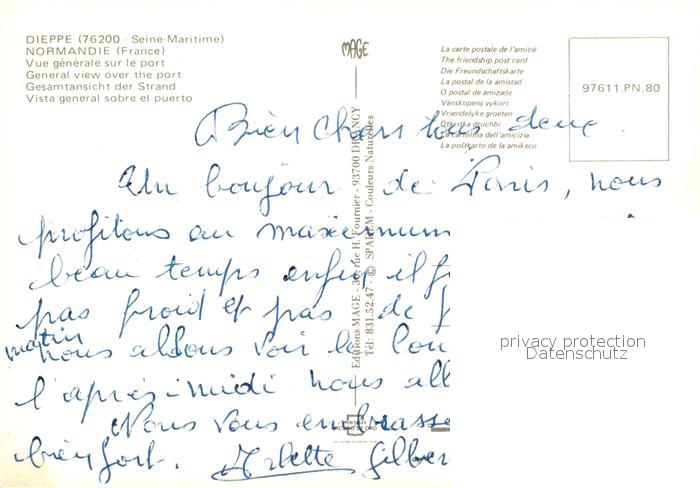 DIEPPE (76200 - Seine-Maritime)
NORMANDIE (France)
Vue générale sur le port
General view over the port
Gesamtansicht der Strand
Vista general sobre el puerto
MAGE
La carte postale de l'amitié
The friendship post card
Die Freundschaftskarte
La postal de la amistad
O postal de amizade
Vänskopens vykort
Vriendelyke groeten
Otkritka druchbi
La cartolina dell'amicizia
La poshtkarto de la amikeco
97611.PN.80
Editions MAGE - rue H. Fournier - 93700 DRANCY
Tél: 831.52.47 - © SPADEM - Couleurs Naturelles
Bien chers tous deux.
Un bonjour de Paris, nous
profitons au maximum
beau temps enfin il f
pas froid et pas de p
matin
nous allons voir le Lou
l'après-midi nous all
Nous vous embrasse
bien fort. Arlette Gilber
privacy protection
Datenschutz